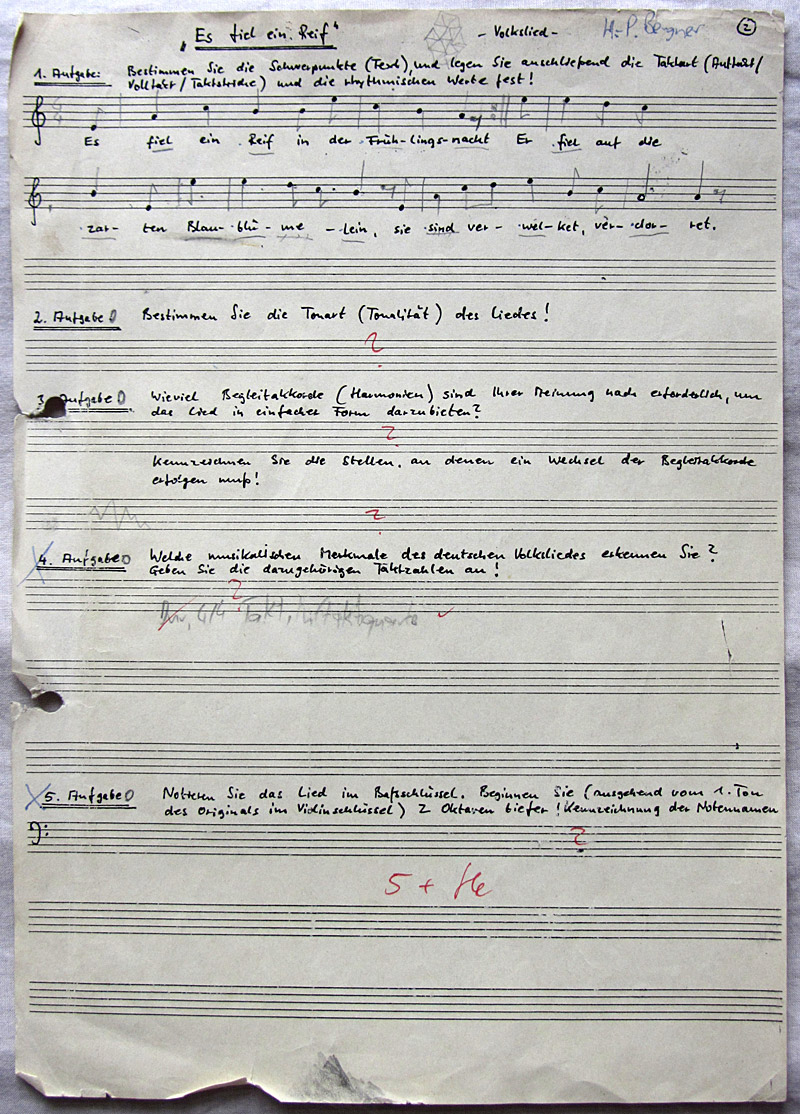 „Es fiel ein Reif“ - Volkslied - H.-P. Bergner 2
1. Aufgabe: Bestimmen Sie die Schwerpunkte (Text), und legen Sie anschließend die Taktart (Auftakt/
Volltakt/Taktstriche) und die rhythmischen Werte fest!
4/4
Es fiel ein Reif in der Früh-lings-nacht Er fiel auf die
zar- ten Blau-blü-me-lein, sie sind ver-wel-ket, ver-dor-ret.
2. Aufgabe Bestimmen Sie die Tonart (Tonalität) des Liedes!
?
3. Aufgabe Wieviel Begleitakkorde (Harmonien) sind Ihrer Meinung nach erforderlich, um
das Lied in einfacher Form darzubieten?
?
Kennzeichnen Sie die Stellen, an denen ein Wechsel der Begleitakkorde
erfolgen muß!
?
4. Aufgabe Welche musikalischen Merkmale des deutschen Volksliedes erkennen Sie?
Geben Sie die dazugehörigen Taktzahlen an!
?
4/4 Takt, Auftaktquarte
5. Aufgabe Notieren Sie das Lied im Baßschlüssel. Beginnen Sie (ausgehend vom 1. Ton
des Originals im Violinschlüssel) 2 Oktaven tiefer! Kennzeichnung der Notennamen
?
5 +